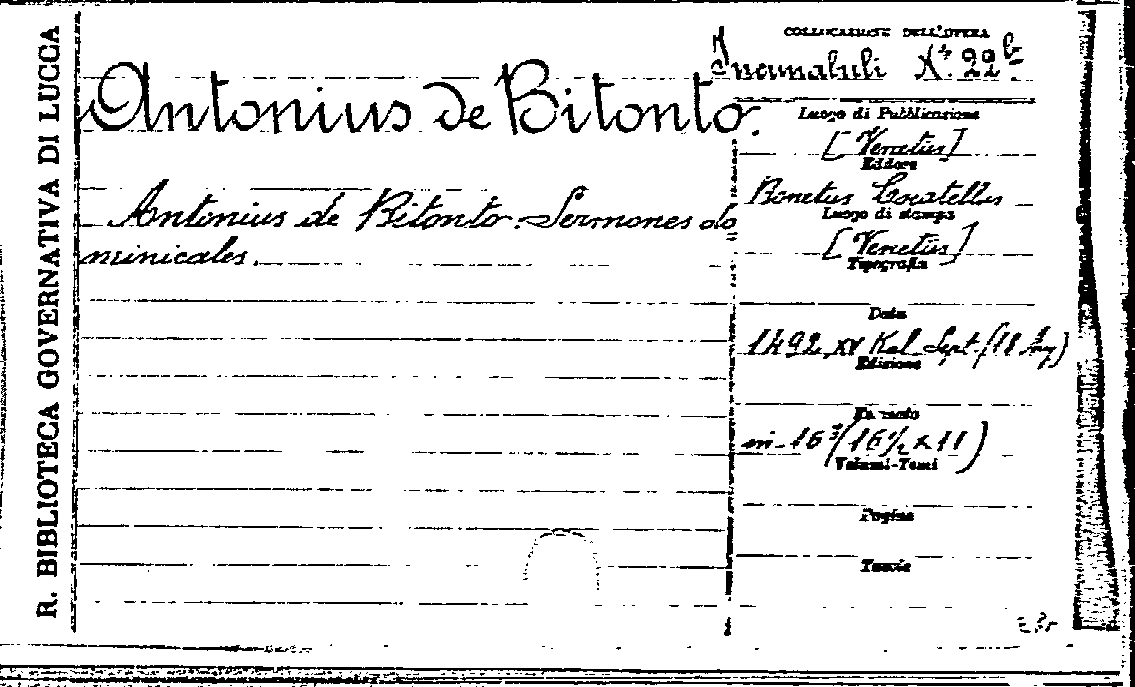 R. BIBLIOTECA GOVERNATIVA DI LUCCA
COLLOCAZIONE DELL'OPERA
Incunabuli N° 22 b
Antonius de Bitonto.
Antonius de Bitonto. Sermones do
minicales.
Luogo di Pubblicazione
[Venetiis]
Editore
Bonetus Locatellus
Luogo di stampa
[Venetiis]
Tipografia
Data
1492 XV Kal. Sept. (18 Aug)
Edizione
Formato
in-16° (16 1/2 x 11)
Volumi-Tomi
Pagine
Tavole